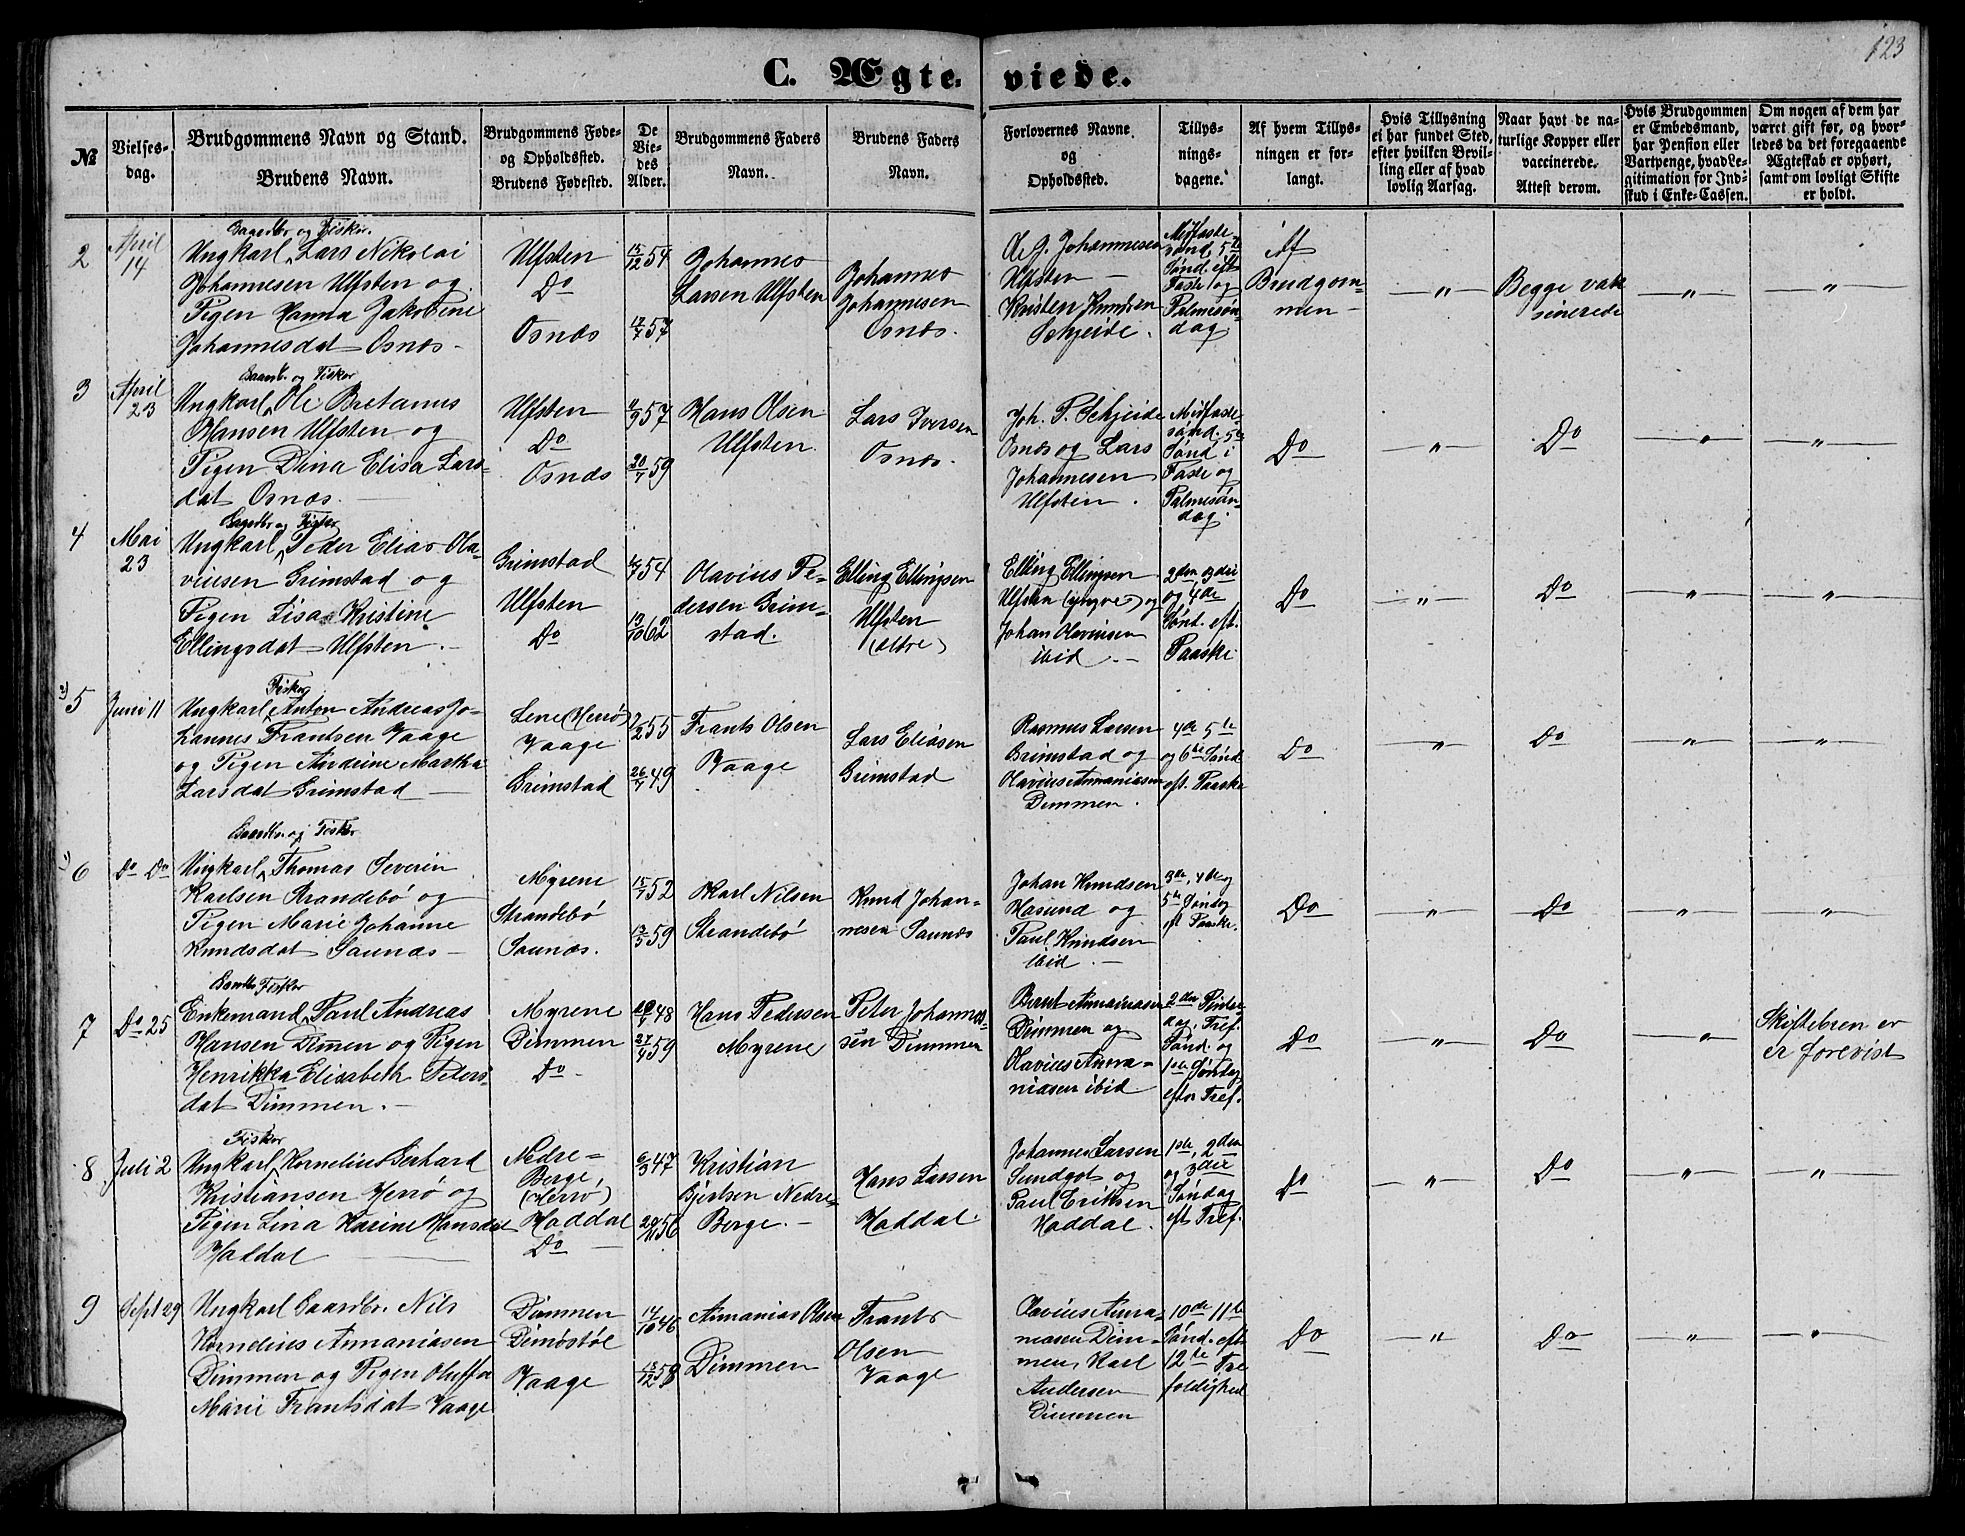 123
C. Ægte- viede.
№
Vielses-
dag.
Brudgommens Navn og Stand.
Brudens Navn.
Brudgommens Føde-
og Opholdssted.
Brudens Fødested.
De
Vie-
des
Alder.
Brudgommens Faders
Navn.
Brudens Faders
Navn.
Forlovernes Navne
og
Opholdssted.
Tillys-
nings-
dagene.
Af hvem Tillys-
ningen er for-
langt.
Hvis Tillysning
ei har fundet Sted,
efter hvilken Bevil-
ling eller af hvad
lovlig Aarsag.
Naar havt de na-
turlige Kopper eller
vaccinerede.
Attest derom.
Hvis Brudgommen
er Embedsmand,
har Pension eller
Vartpenge, hvad Le-
gitimation for Ind-
skud i Enke-Cassen.
Om nogen af dem har
været gift før, og hvor-
ledes da det foregaaende
Ægteskab er ophørt,
samt om lovligt Skifte
er holdt.
2
April
14
og Fisker
Ungkarl Lars Nikolai
Johannesen Ulfsten og
Pigen Hanna Jakobine
Johannesdat Osnæs
Ulfsten
Do
Osnæs
15/12 54
17/7 57
Johannes
Larsen Ulfsten
Johannes
Johannesen
Osnæs.
Johannesen
Ulfsten
Kristen Knudsen
Schjeide.
Midfaste-
sønd. 5te
Sønd. i
Faste og
Palmesøn-
dag
Af
Brudgom-
men
"
Begge vak
sinerede
"
"
3
April
23
og Fisker
Ungkarl Ole Bretanus
Hansen Ulfsten og
Pigen Dina Elisa Lars-
dat Osnæs.
Ulfsten
Do
Osnæs
9/9 57
20/7 59
Hans Olsen
Ulfsten
Lars Iversen
Osnæs.
Joh. P. Schjeide
Osnæs og Lars
Johannesen
Ulfsten.
Midfaste-
sønd. 5te
Sønd i
Faste og
Palmesøn-
dag.
Do
"
Do
"
"
4
Mai
23
og Fisker
Ungkarl Peder Elias Ola-
viusen Grimstad og
Pigen Lisa Kristine
Ellingsdat Ulfsten.
Grimstad
Ulfsten
Do
54
13/10 62
Olavius Pe-
dersen Grim-
stad.
Elling Ellingsen
Ulfsten
(eldre)
Elling Ellingsen
Ulfsten (yngre) og
Johan Olaviusen
ibid.
2den 3die
og 4de
Sønd. eft.
Paaske
Do
"
Do
"
"
5
Juni 11
Fisker
Ungkarl Anton Andreas Jo-
hannes Frantsen Vaage
og Pigen Andrine Martha
Larsdat Grimstad
Lene (Herrø)
Vaage
Grimstad
9/2 55
26/7 49
Frants Olsen
Vaage
Lars Eliasen
Grimstad
Rasmus Larsen
Grimstad og
Olavius Annaniasen
Dimmen.
4de 5te
og 6te Sønd
eft. Paaske
Do
"
Do
"
"
6
Do Do
og Fisker
Ungkarl Thomas Severin
Karlsen Strandebø og
Pigen Marie Johanne
Knudsdat Saunæs
Myrene
Strandebø
Saunæs.
15/7 52
13/5 59
Karl Nilsen
Strandebø
Knud Johan-
nesen Saunæs
Johan Knudsen
Hasund og
Paul Knudsen
ibid.
3de, 4de og
5te Søndag
eft Paaske.
Do
"
Do
"
"
7
Do 25
Fisker
Enkemand Paul Andreas
Hansen Dimmen og Pigen
Henrikka Elisabeth Peters-
dat Dimmen.
Myrene
Dimmen
Do
48
27/4 59
Hans Pedersen
Myrene
Peter Johannes-
sen Dimmen
Bernt Annaniasen
Dimmen og
Olavius Anna-
niasen ibid
2den Pintse-
dag, Tref.
Sønd. og
1ste Søndag
efter Tref.
Do
"
Do
"
Skiftebren er
er forevist
8
Juli 2
Fisker
Ungkarl Kornelius Gerhard
Kristiansen Herrø og
Pigen Lina Karine Hansdat
Haddal
Nedre-
Berge,
(Herrø)
Haddal
Do
6/3 47
56
Kristian
Bjertsen Nedre
Berge.
Hans Larsen
Haddal
Johannes Larsen
Sundgot og
Paul Eriksen
Haddal.
1ste, 2den
og 3die
Søndag
eft Tref.
Do
"
Do
"
"
9
Sept 29
Ungkarl Baardbr. Nils
Kornelius Annaniasen
Dimmen og Pigen Oluffa
Marie Frantsdat Vaage
Dimmen
Dimøstøl
Vaage
14/10 46
18/12 58
Annanias Olsen
Dimmen
Frants
Olsen
Vaage
Olavius Anna-
niasen Dim-
men, Karl
Andersen
Dimmen
10de 11te
Sønd. eft
12te Tre
foldighed
Do
"
Do
"
"